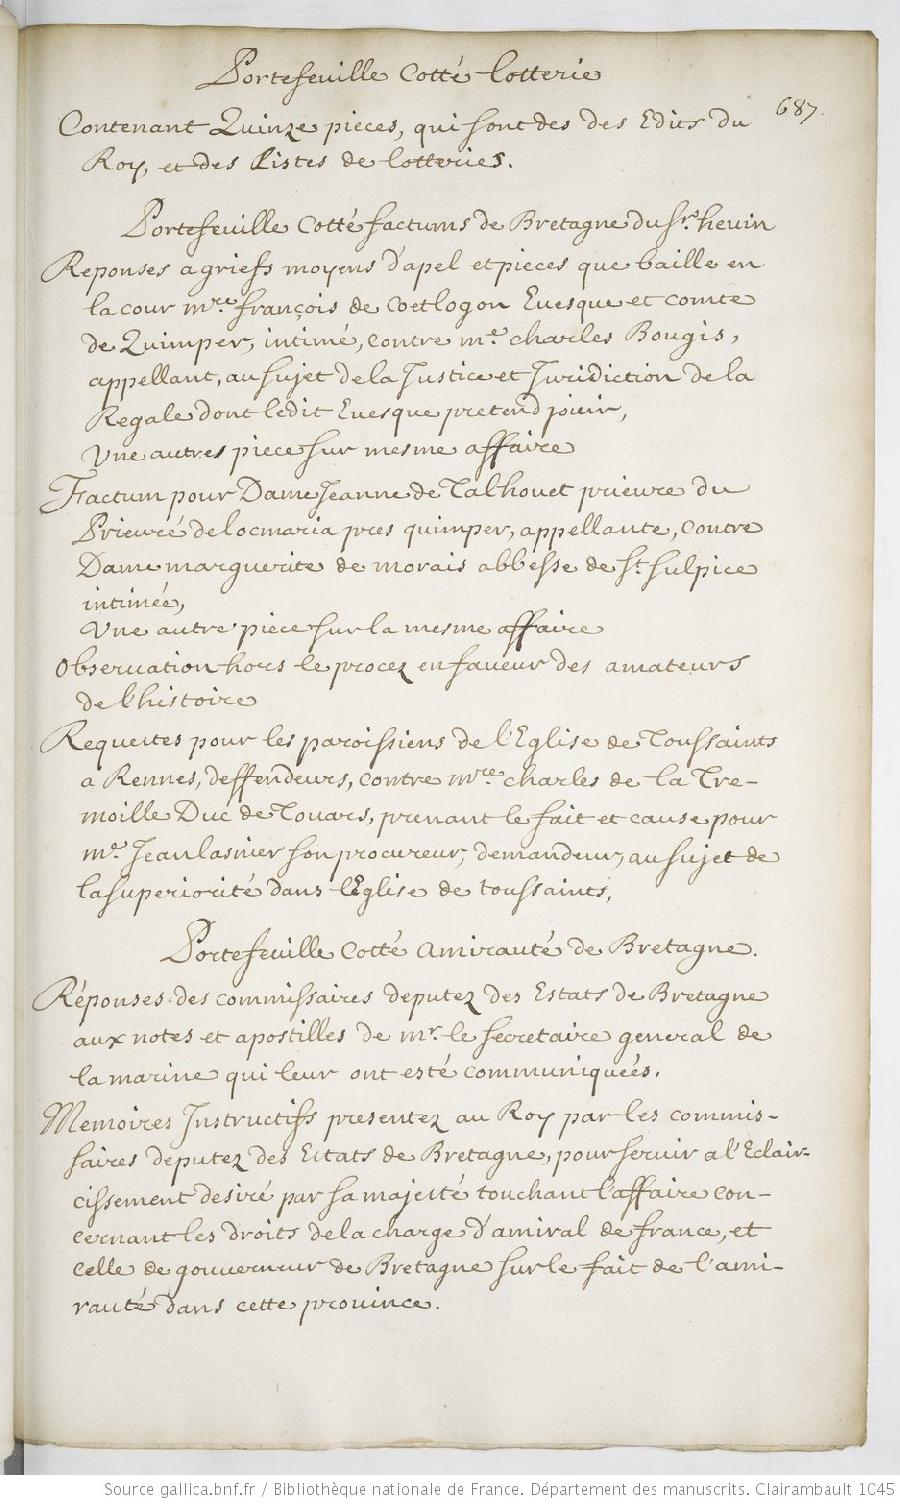 Portefeuille Cotté Lotterie
687.
Contenant Quinze pieces, qui sont des des Edits du
Roy, et des Listes de lotteries.
Portefeuille Cotté factums de Bretagne du Sr. hevin
Reponses a griefs moyens d'apel et pieces que baille en
la cour mre. françois de Coetlogon Evesque et comte
de Quimper, intimé, contre me. charles Bougis,
appellant, au sujet de la Justice et Juridiction de la
Regale dont ledit Evesque pretend jouir,
Une autres piece sur mesme affaire
Factum pour Dame Jeanne de Talhouet prieure du
Prieuré de locmaria pres quimper, appellante, contre
Dame marguerite de morais abbesse de St. Sulpice
intimée,
Une autre piece sur la mesme affaire
Observation hors le procez en faveur des amateurs
de l'histoire
Requestes pour les paroissiens de l'Eglise de Toussaints
a Rennes, deffendeurs, contre mre. charles de la Tre-
moille Duc de Touars, prenant le fait et cause pour
me. Jean lasnier son procureur, demandeur, au sujet de
la superiorité dans l'Eglise de toussaints,
Portefeuille Cotté Amirauté de Bretagne.
Réponses des commissaires deputez des Estats de Bretagne
aux notes et apostilles de mr. le secretaire general de
la marine qui leur ont esté communiqueés.
Memoires Instructifs presentez au Roy par les commis-
saires deputez des Estats de Bretagne, pour servir a l'Eclair-
cissement desiré par sa majesté touchant l'affaire con-
cernant les droits de la charge d'amiral de france, et
celle de gouverneur de Bretagne sur le fait de l'ami-
rauté dans cette province.
Source gallica.bnf.fr / Bibliothèque nationale de France. Département des manuscrits. Clairambault 1045